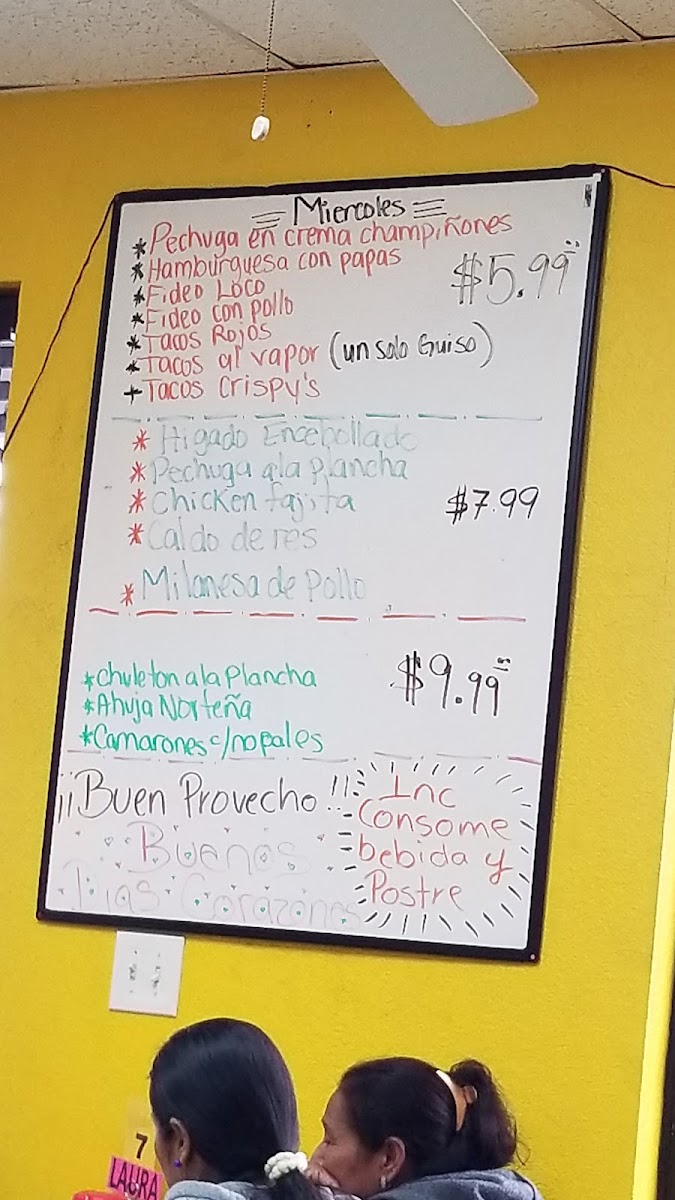 Miercoles
* Pechuga en crema champiñones
* Hamburguesa con papas
$5.99
* Fideo Loco
* Fideo con pollo
* Tacos Rojos
* Tacos al vapor (un solo Guiso)
+ Tacos Crispy's
* Higado Encebollado
* Pechuga a la plancha
* Chicken fajita
$7.99
* Caldo de res
* Milanesa de Pollo
* Chuleton a la Plancha
$9.99
* Ahuja Norteña
* Camarones c/nopales
¡¡Buen Provecho!!
Buenos
Dias Corazones
Inc
Consome
bebida y
Postre
7
LAURA